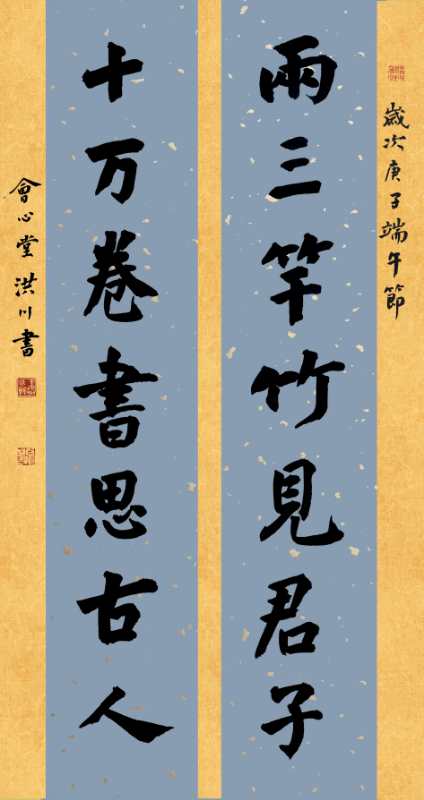 歲次庚子端午節
兩三竿竹見君子
十万卷書思古人
會心堂洪川書